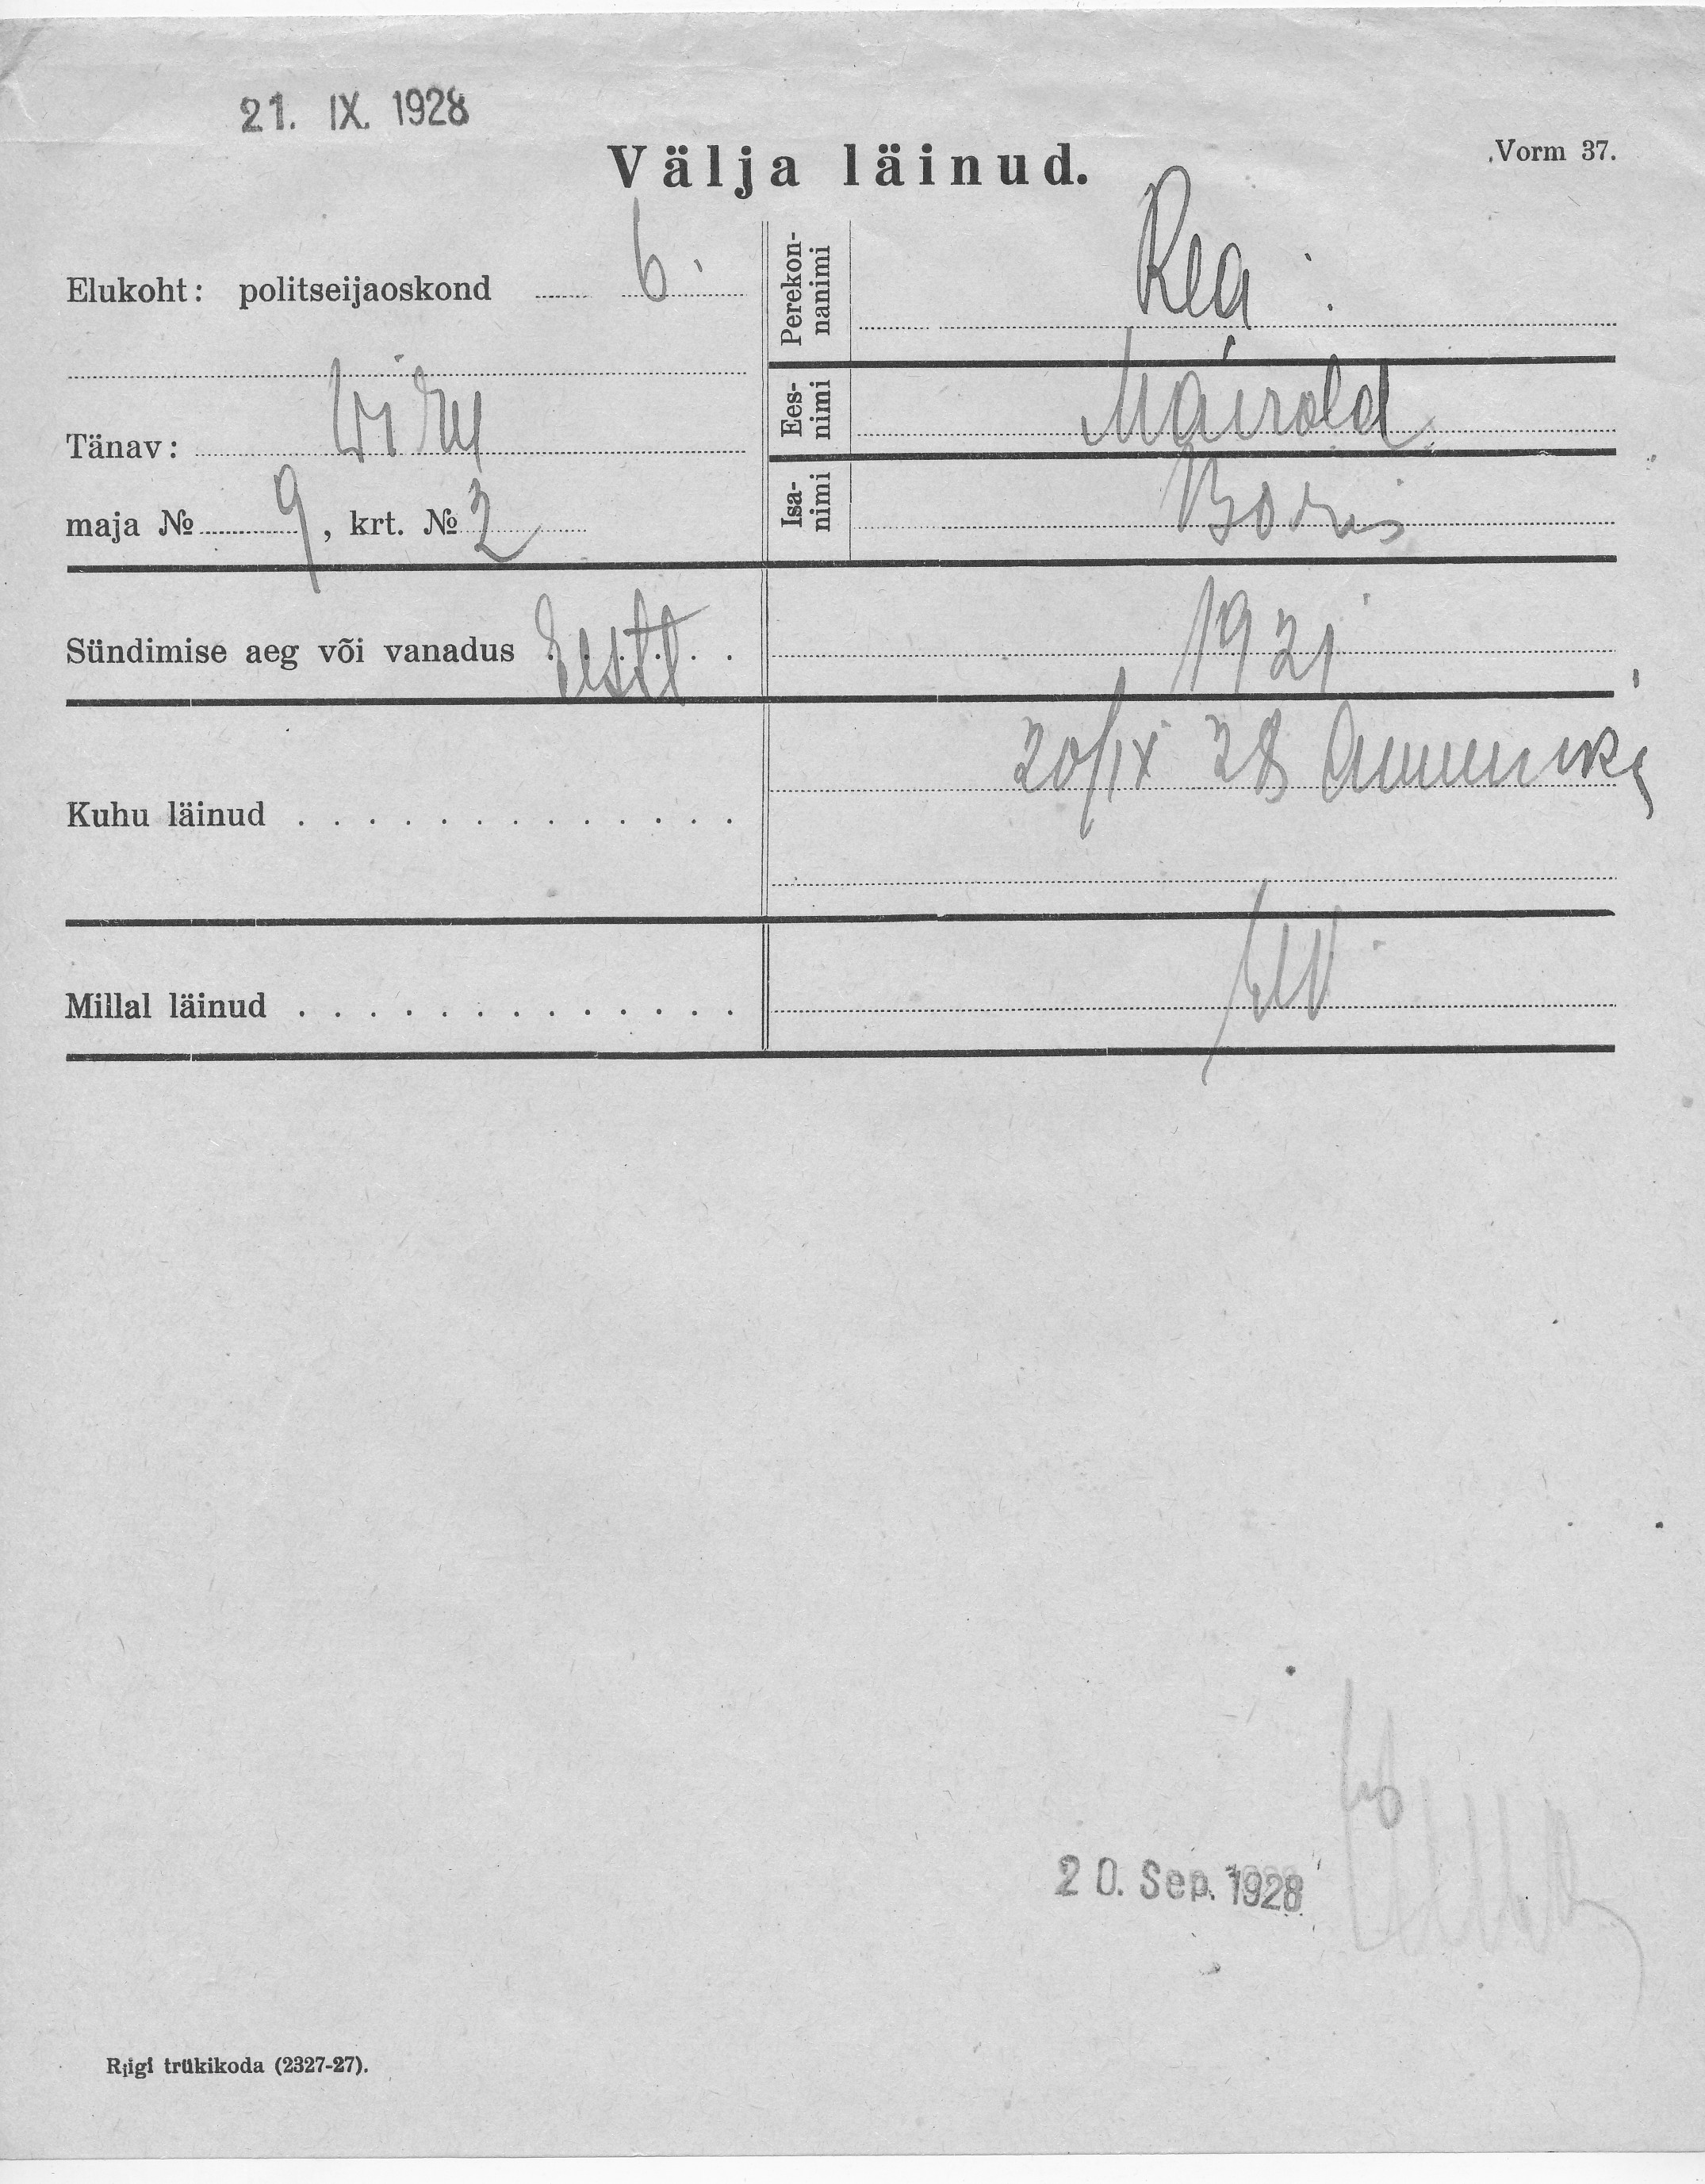 21. IX. 1928
Välja läinud.
Vorm 37.
Elukoht: politseijaoskond 6.
Perekonnanimi Rea
Tänav: Wiru
Eesnimi
maja № 9, krt. № 2
Isanimi Boris
Sündimise aeg või vanadus Eestl 1921
Kuhu läinud 20/IX 28 Ameerika
Millal läinud
20. Sep. 1928
Riigi trükikoda (2327-27).